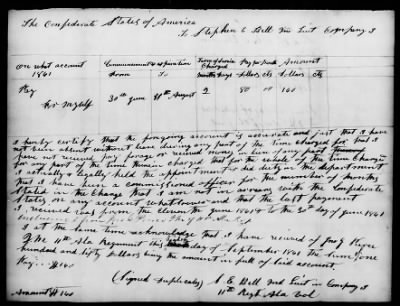 The Confederate States of America
To Stephen E Bell 2nd Lieut Company I
On what account
1861
Commencement & expiration
from To
Time of Service Charged
Months Days
Pay per Month
Dollars cts
Amount
Dollars cts
Pay
for myself
30th June 31st August 2 80 00 160
I hereby certify that the foregoing account is accurate and just that I have
not been absent without leave during any part of the time charged for that I
have not received pay forage or received money in lieu of any part thereof
for any part of the time therein charged that for the whole of the time charged
I actually & legally held the appointment & did duty in the department
that I have been a commissioned officer for the number of months
stated in the Charge that I am not in arrears with the Confederate
States on any account whatsoever and that the last payment
I received was from the eleventh June 1861 to the 30th day of June 1861
I at the same time acknowledge that I have received of
the 11th Ala Regiment this day of September 1861 the sum of one
hundred and sixty dollars being the amount in full of said account
Pay $160
(Signed duplicates) S. E. Bell 2nd Lieut in Company I
Amount $160 11th Regt Ala Vol